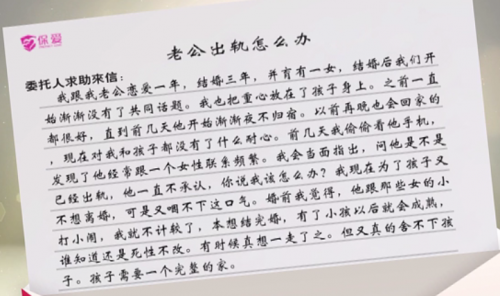 保爱
老公出轨怎么办
委托人求助来信：
我跟我老公恋爱一年，结婚三年，并育有一女，结婚后我们开
始渐渐没有了共同话题。我也把重心放在了孩子身上。之前一直
都很好，直到前几天他开始渐渐夜不归宿。以前再晚也会回家的
，现在对我和孩子都没有了什么耐心。前几天我偷偷看他手机，
发现了他经常跟一个女性联系频繁。我会当面指出，问他是不是
已经出轨，他一直不承认，你说我该怎么办？我现在为了孩子又
不想离婚，可是又咽不下这口气。婚前我觉得，他跟那些女的小
打小闹，我就不计较了，本想结完婚，有了小孩以后就会成熟，
谁知道还是死性不改。有时候真想一走了之。但又真的舍不下孩
子。孩子需要一个完整的家。